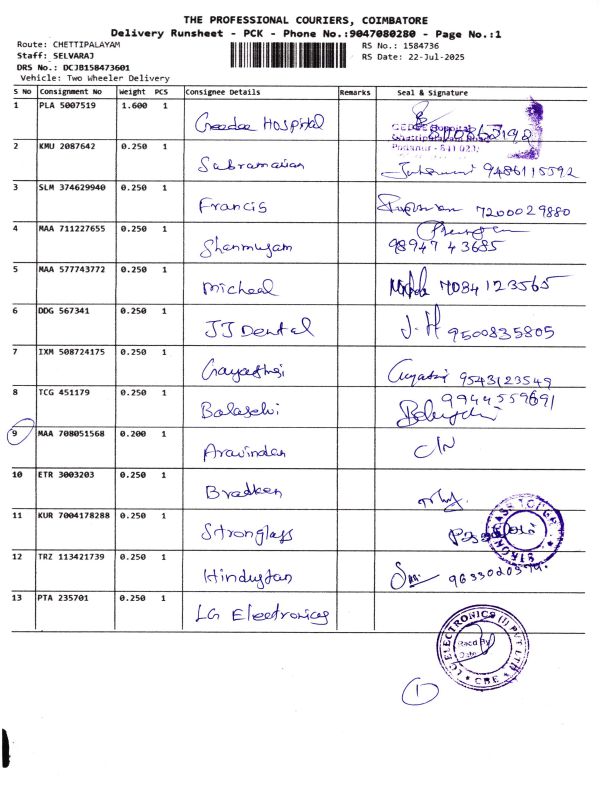 THE PROFESSIONAL COURIERS, COIMBATORE
Delivery Runsheet - PCK - Phone No.:9047080280 - Page No.:1
Route: CHETTIPALAYAM RS No.: 1584736
Staff: SELVARAJ RS Date: 22-Jul-2025
DRS No.: DCJB158473601
Vehicle: Two Wheeler Delivery
S No Consignment No Weight PCS Consignee Details Remarks Seal & Signature
1 PLA 5007519 1.600 1 Hospital
2 KMU 2087642 0.250 1 Subramanian 9486115592
3 SLM 374629940 0.250 1 Francis 7200029880
4 MAA 711227655 0.250 1 Shanmugam 98947 43685
5 MAA 577743772 0.250 1 Micheal 7084123565
6 DDG 567341 0.250 1 JJ Dental J. H 9500835805
7 IXM 508724175 0.250 1 Gayathri Gayatri 9543123549
8 TCG 451179 0.250 1 9944559691
9 MAA 708051568 0.200 1 Aravindan C/N
10 ETR 3003203 0.250 1 Bradken
11 KUR 7004178288 0.250 1 Stronglass
12 TRZ 113421739 0.250 1 Hindustan
13 PTA 235701 0.250 1 LG Electronics
LG ELECTRONICS (I) PVT LTD
Recd By
Date
CBE
1